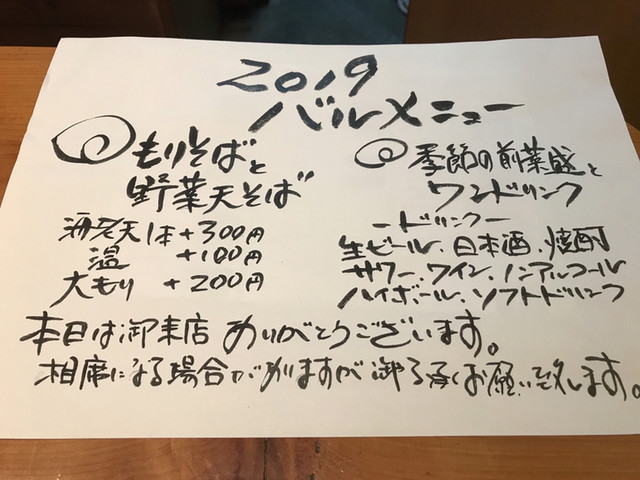 2019
バルメニュー
もりそばと
野菜天そば
海老天1本+300円
温 +100円
大もり +200円
季節の前菜盛と
ワンドリンク
ードリンクー
生ビール、日本酒、焼酎
サワー、ワイン、ノンアルコール
ハイボール、ソフトドリンク
本日は御来店ありがとうございます。
相席になる場合がありますが御了承くお願い致します。